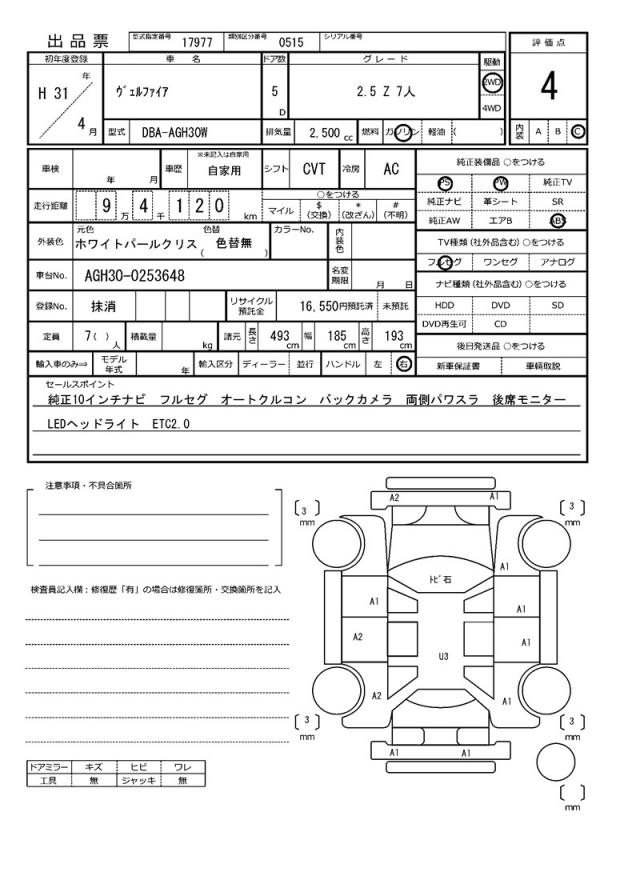 出品票 型式指定番号 17977 類別区分番号 0515 シリアル番号
評価点
4
内装 A B C
初年度登録 車名 ドア数 グレード 駆動
H 31 年 4 月
ヴェルファイア 5 D 2.5 Z 7人 2WD 4WD
型式 DBA-AGH30W 排気量 2,500 cc 燃料 ガソリン 軽油 ( )
車検 年 月 車歴 ※未記入は自家用 自家用 シフト CVT 冷房 AC
走行距離 9 万 4 千 1 2 0 km
○をつける
マイル $ (交換) * (改ざん) # (不明)
外装色 元色 色替
ホワイトパールクリス ( 色替無 )
カラーNo. 内装色
車台No. AGH30-0253648 名変期限 月 日
登録No. 抹消 リサイクル預託金 16,550円預託済 未預託
定員 7( ) 人 積載量 kg 諸元 長さ 493 cm 幅 185 cm 高さ 193 cm
輸入車のみ⇒ モデル年式 年 輸入区分 ディーラー 並行 ハンドル 左 右
純正装備品 ○をつける
PS PW 純正TV
純正ナビ 革シート SR
純正AW エアB ABS
TV種類(社外品含む)○をつける
フルセグ ワンセグ アナログ
ナビ種類(社外品含む)○をつける
HDD DVD SD
DVD再生可 CD
後日発送品 ○をつける
新車保証書 車輌取説
セールスポイント
純正10インチナビ フルセグ オートクルコン バックカメラ 両側パワスラ 後席モニター
LEDヘッドライト ETC2.0
注意事項・不具合箇所
検査員記入欄:修復歴「有」の場合は修復箇所・交換箇所を記入
ドアミラー キズ ヒビ ワレ
工具 無 ジャッキ 無
A2 A1
[ 3 ] mm
[ 3 ] mm
A1
トビ石
A1 A1
A2 A1
U3
A2 A1
[ 3 ] mm
[ 3 ] mm
A1 A1
[ ] mm